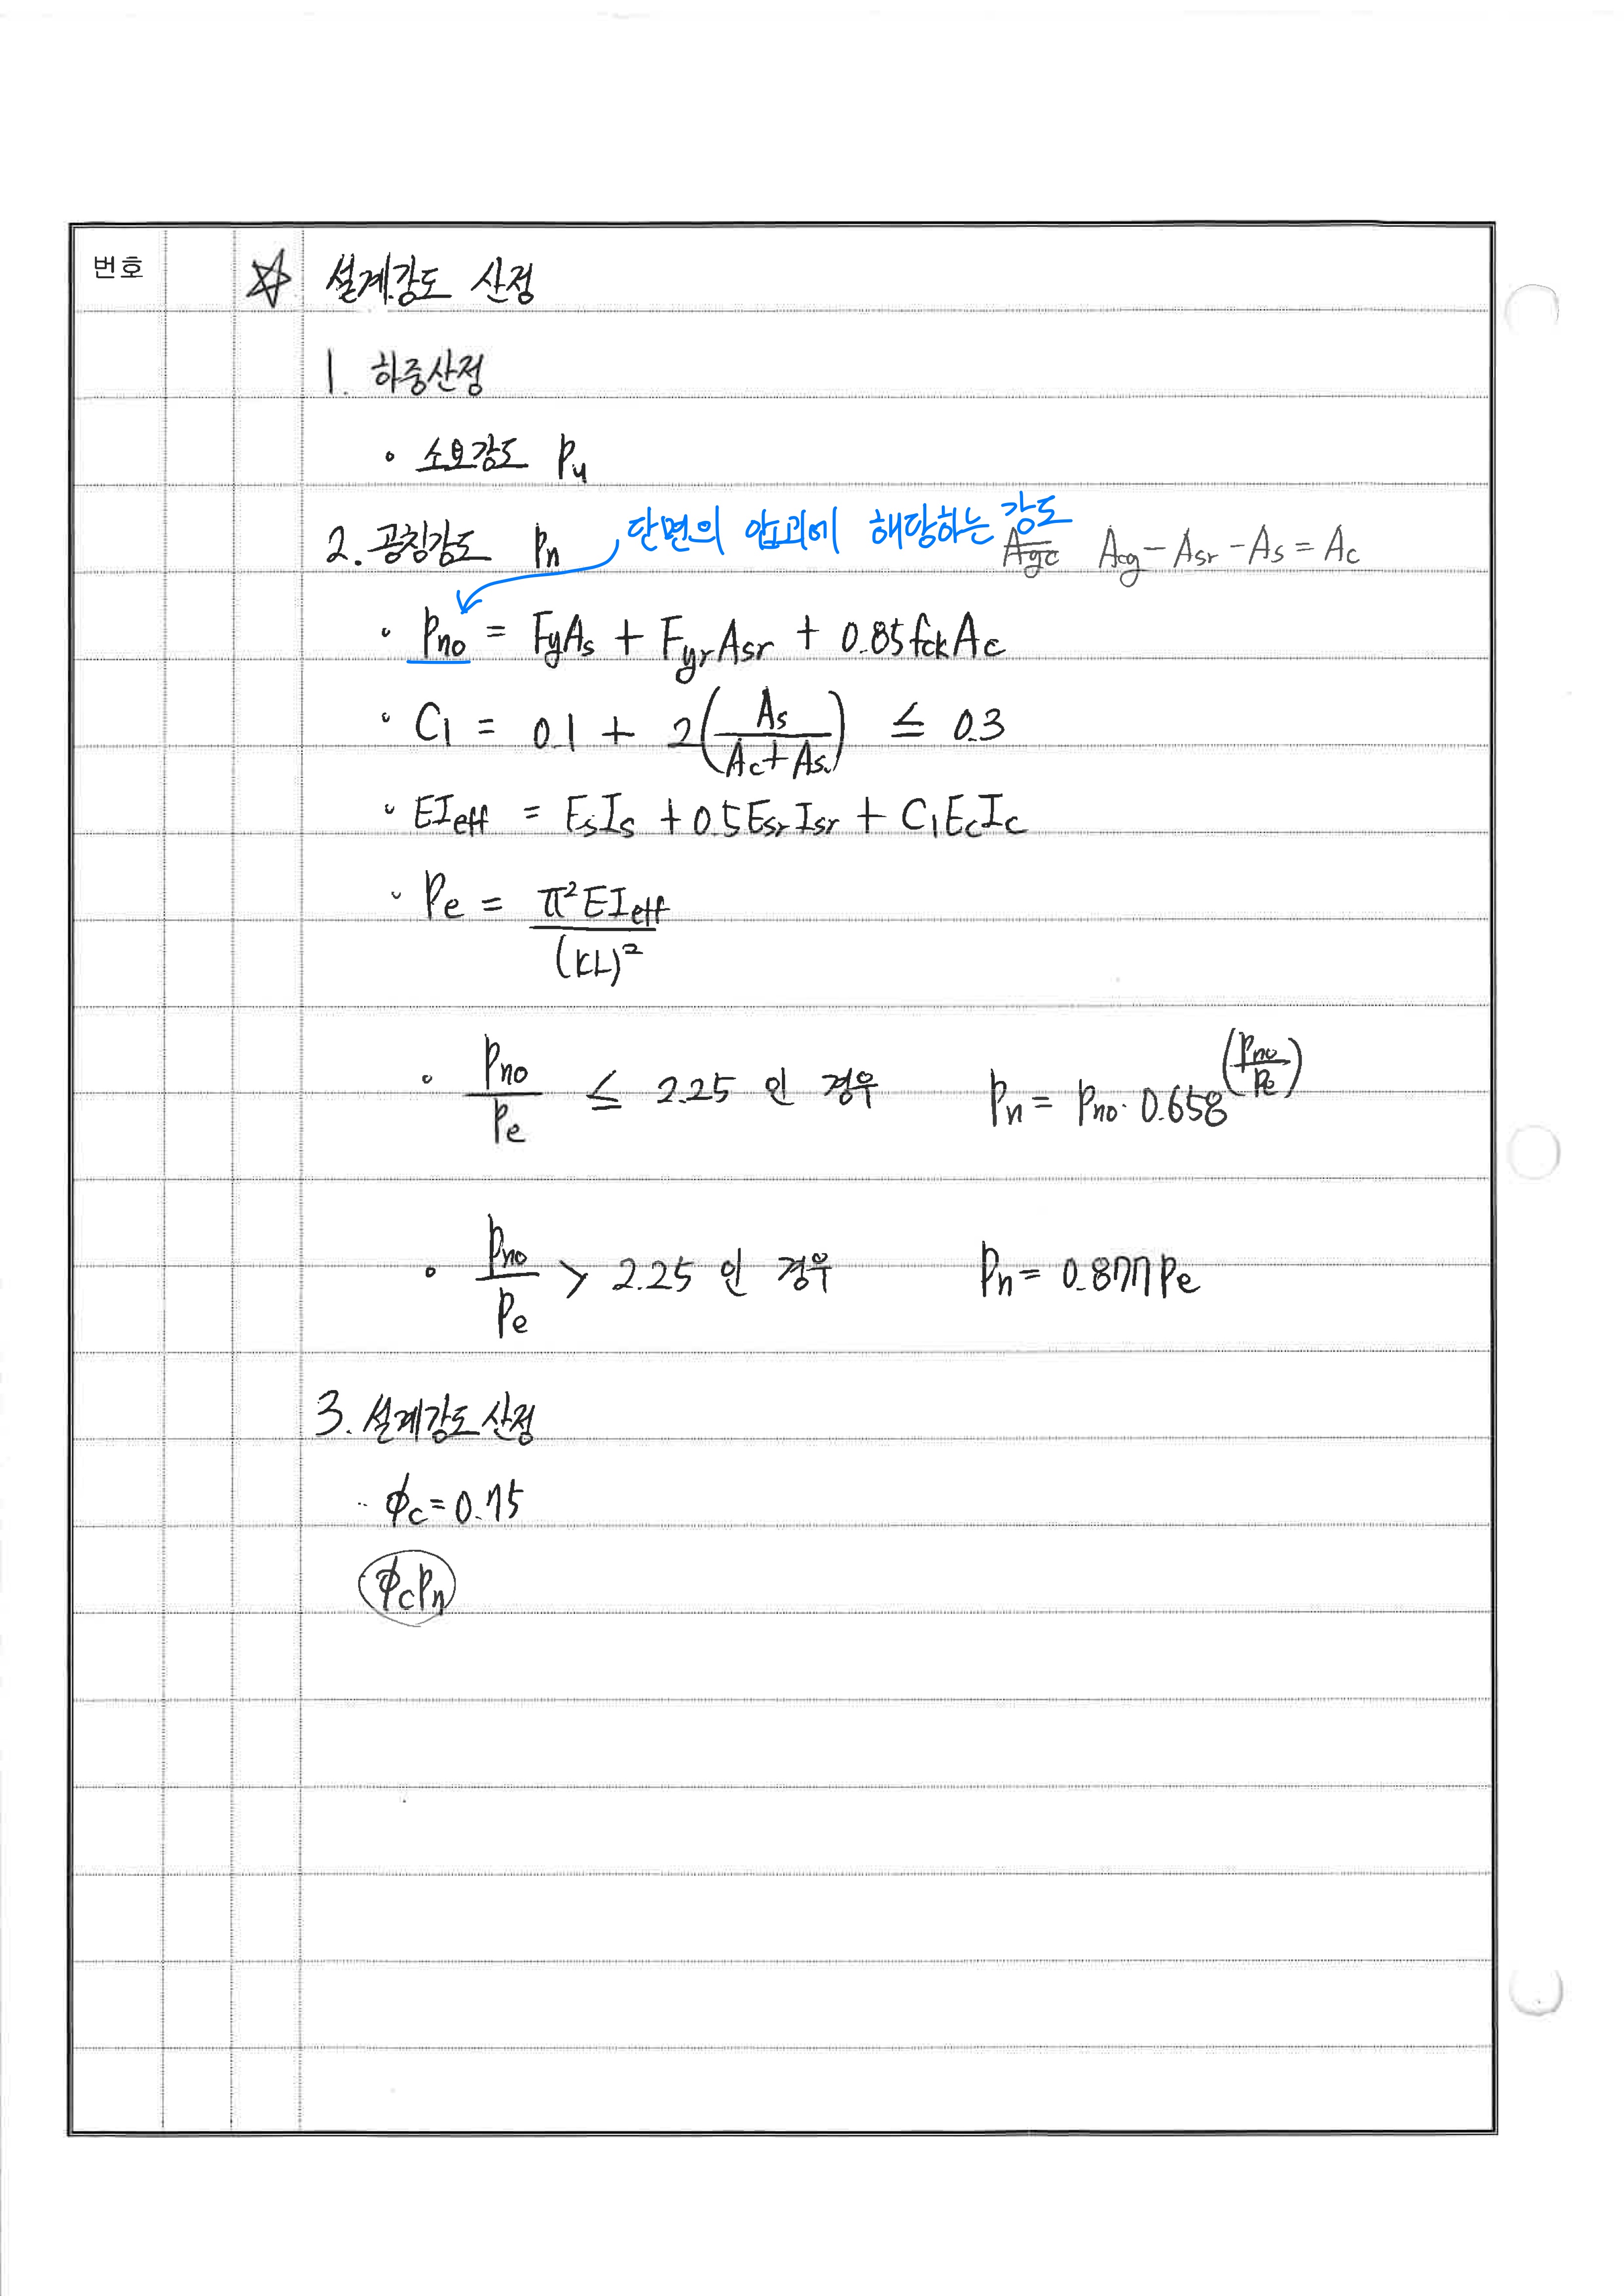 번호
☆ 설계강도 산정
1. 하중산정
• 소요강도 Pu
2. 공칭강도 Pn 단면의 압괴에 해당하는 강도
A̶g̶c̶ Acg - Asr - As = Ac
• Pno = FyAs + FyrAsr + 0.85fckAc
• C1 = 0.1 + 2(As/(Ac+As)) ≤ 0.3
• EIeff = EsIs + 0.5EsrIsr + C1EcIc
• Pe = π²EIeff/(KL)²
• Pno/Pe ≤ 2.25 인 경우 Pn = Pno · 0.658^(Pno/Pe)
• Pno/Pe > 2.25 인 경우 Pn = 0.877Pe
3. 설계강도 산정
· ϕc = 0.75
ϕcPn